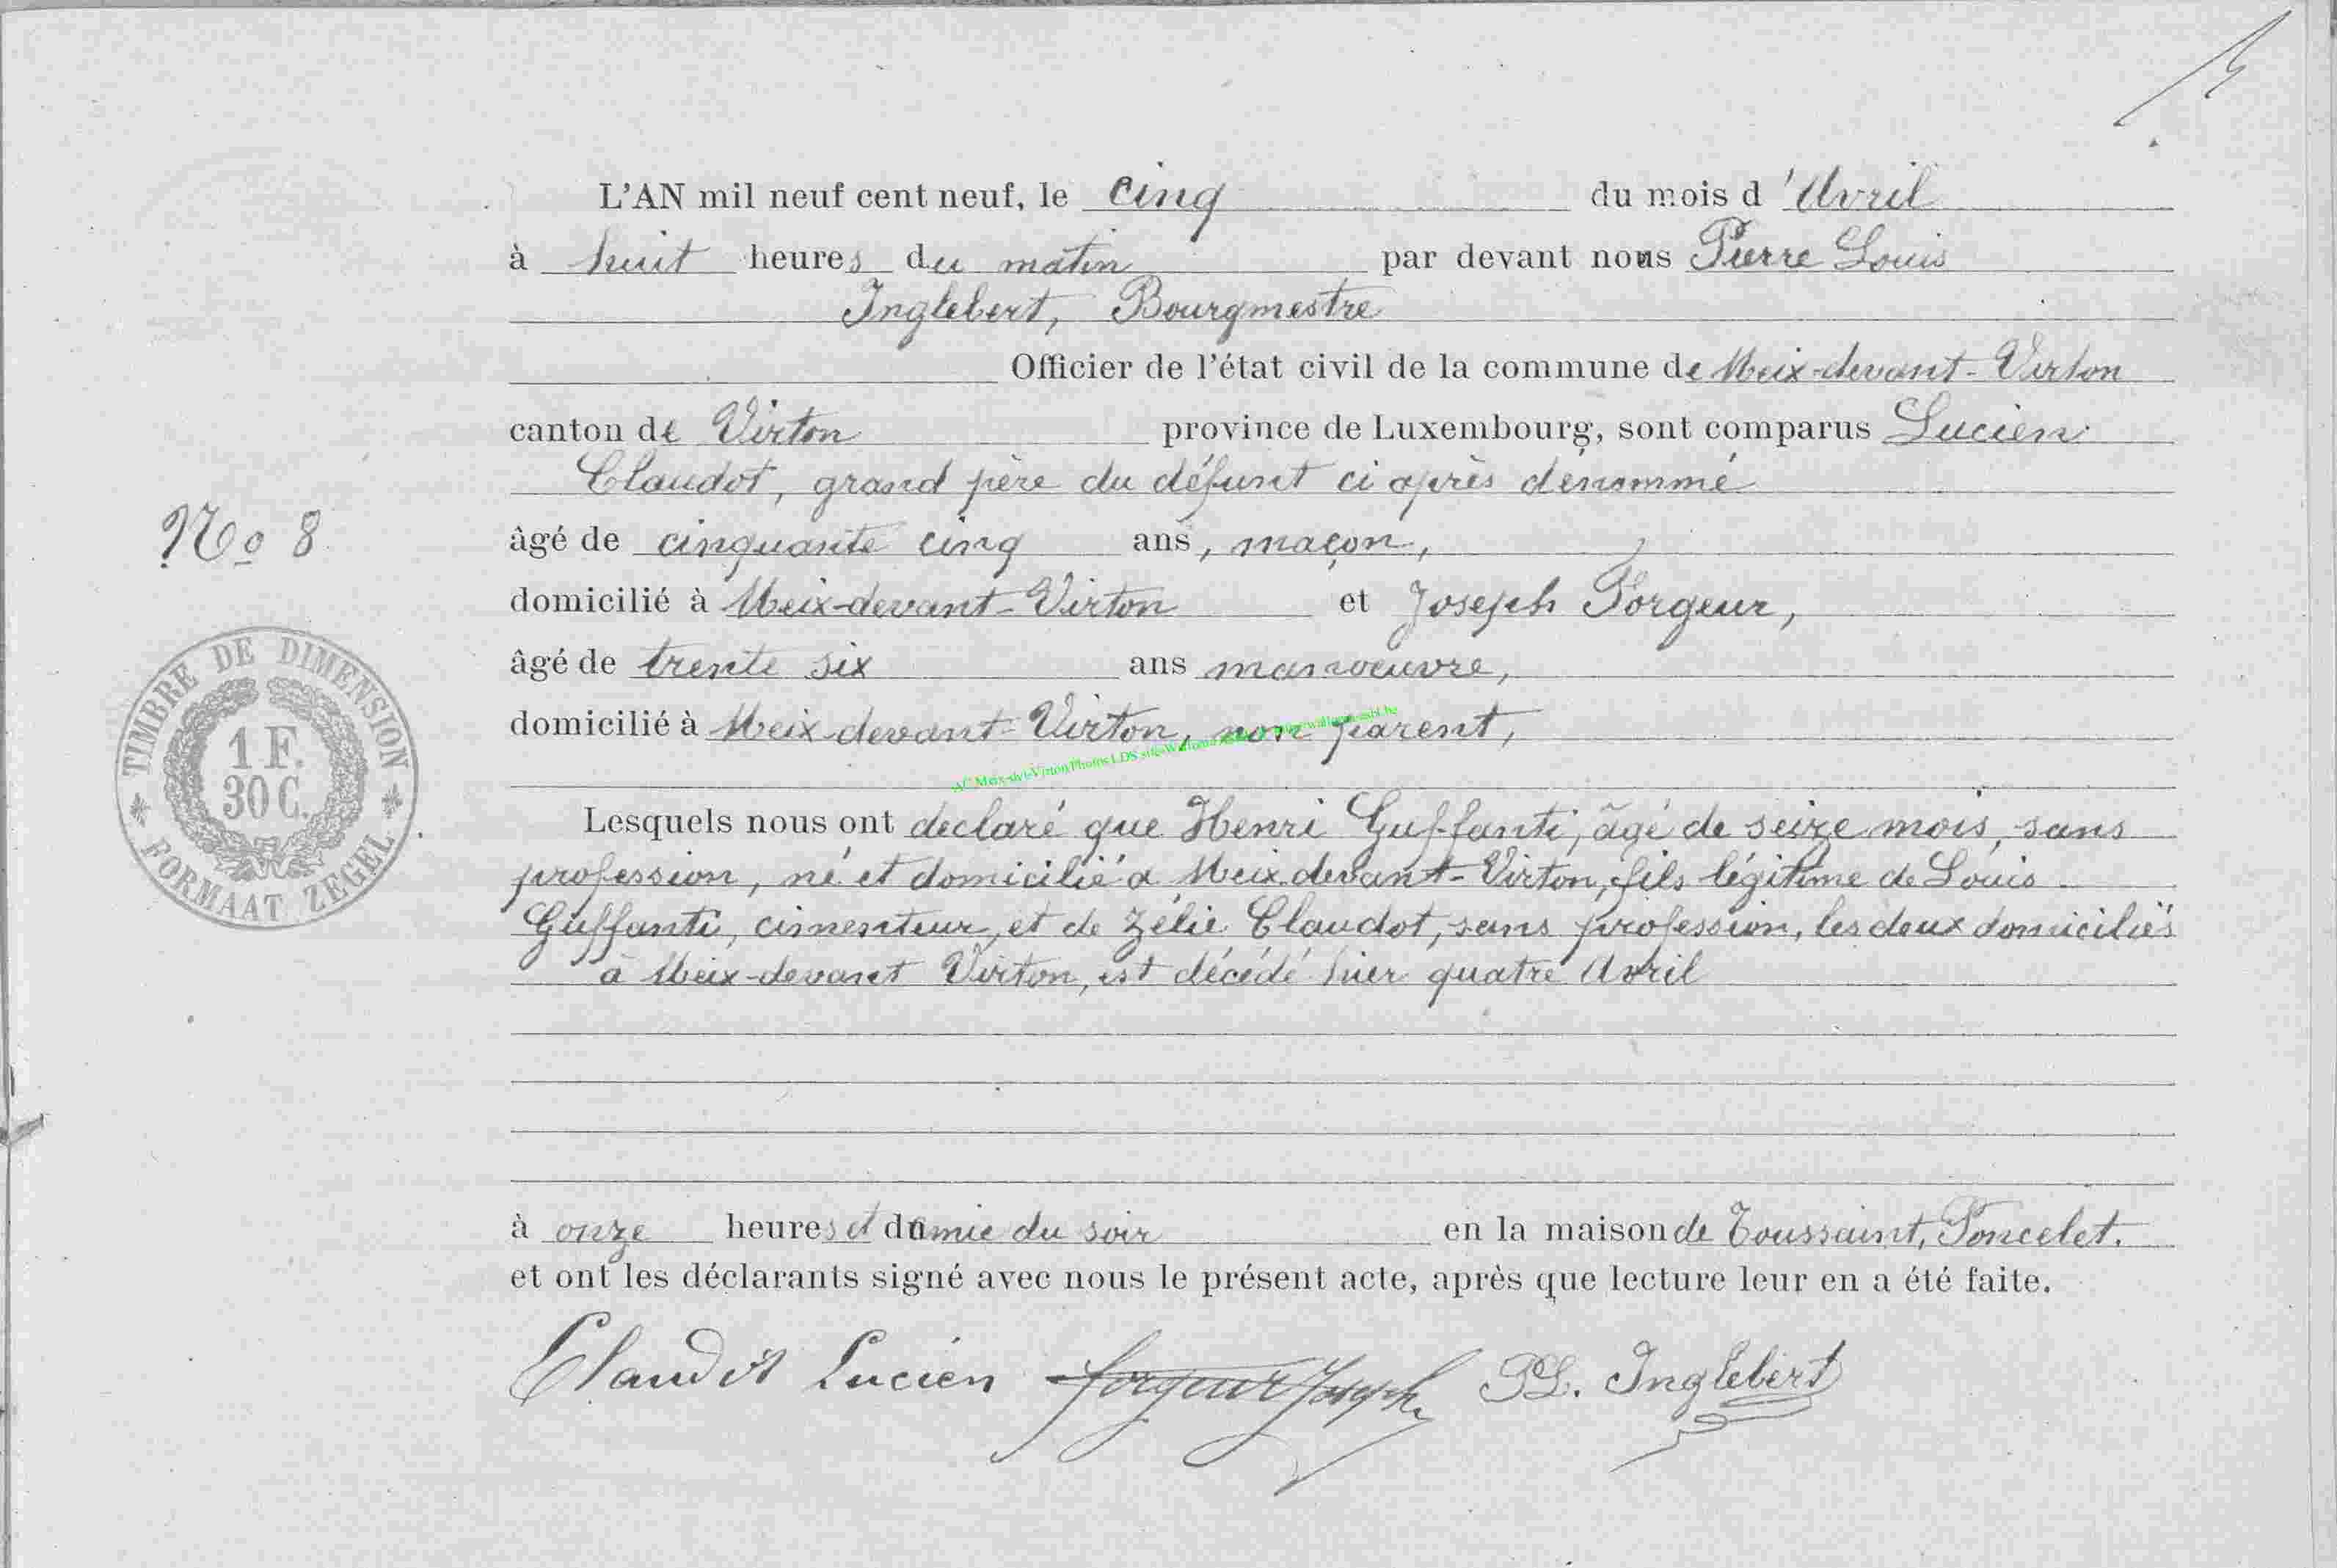 L'AN mil neuf cent neuf, le cinq du mois d'Avril
à huit heures du matin par devant nous Pierre Louis
Inglebert, Bourgmestre
Officier de l'état civil de la commune de Meix-devant-Virton
canton de Virton province de Luxembourg, sont comparus Lucien
Claudot, grand père du défunt ci après dénommé
No 8
âgé de cinquante cinq ans, maçon,
domicilié à Meix-devant-Virton et Joseph Forgeur,
âgé de trente six ans manoeuvre,
domicilié à Meix-devant-Virton, non parent,
TIMBRE DE DIMENSION
1 F.
30 C.
FORMAAT ZEGEL
Lesquels nous ont declaré que Henri Guffanti, âgé de seize mois, sans
profession, né et domicilié à Meix-devant-Virton, fils légitime de Louis
Guffanti, cimenteur, et de Zélie Claudot, sans profession, les deux domiciliés
à Meix-devant Virton, est décédé hier quatre Avril
à onze heures et demie du soir en la maison de Toussaint, Poncelet.
et ont les déclarants signé avec nous le présent acte, après que lecture leur en a été faite.
Claudot Lucien forgeur Joseph PL. Inglebert